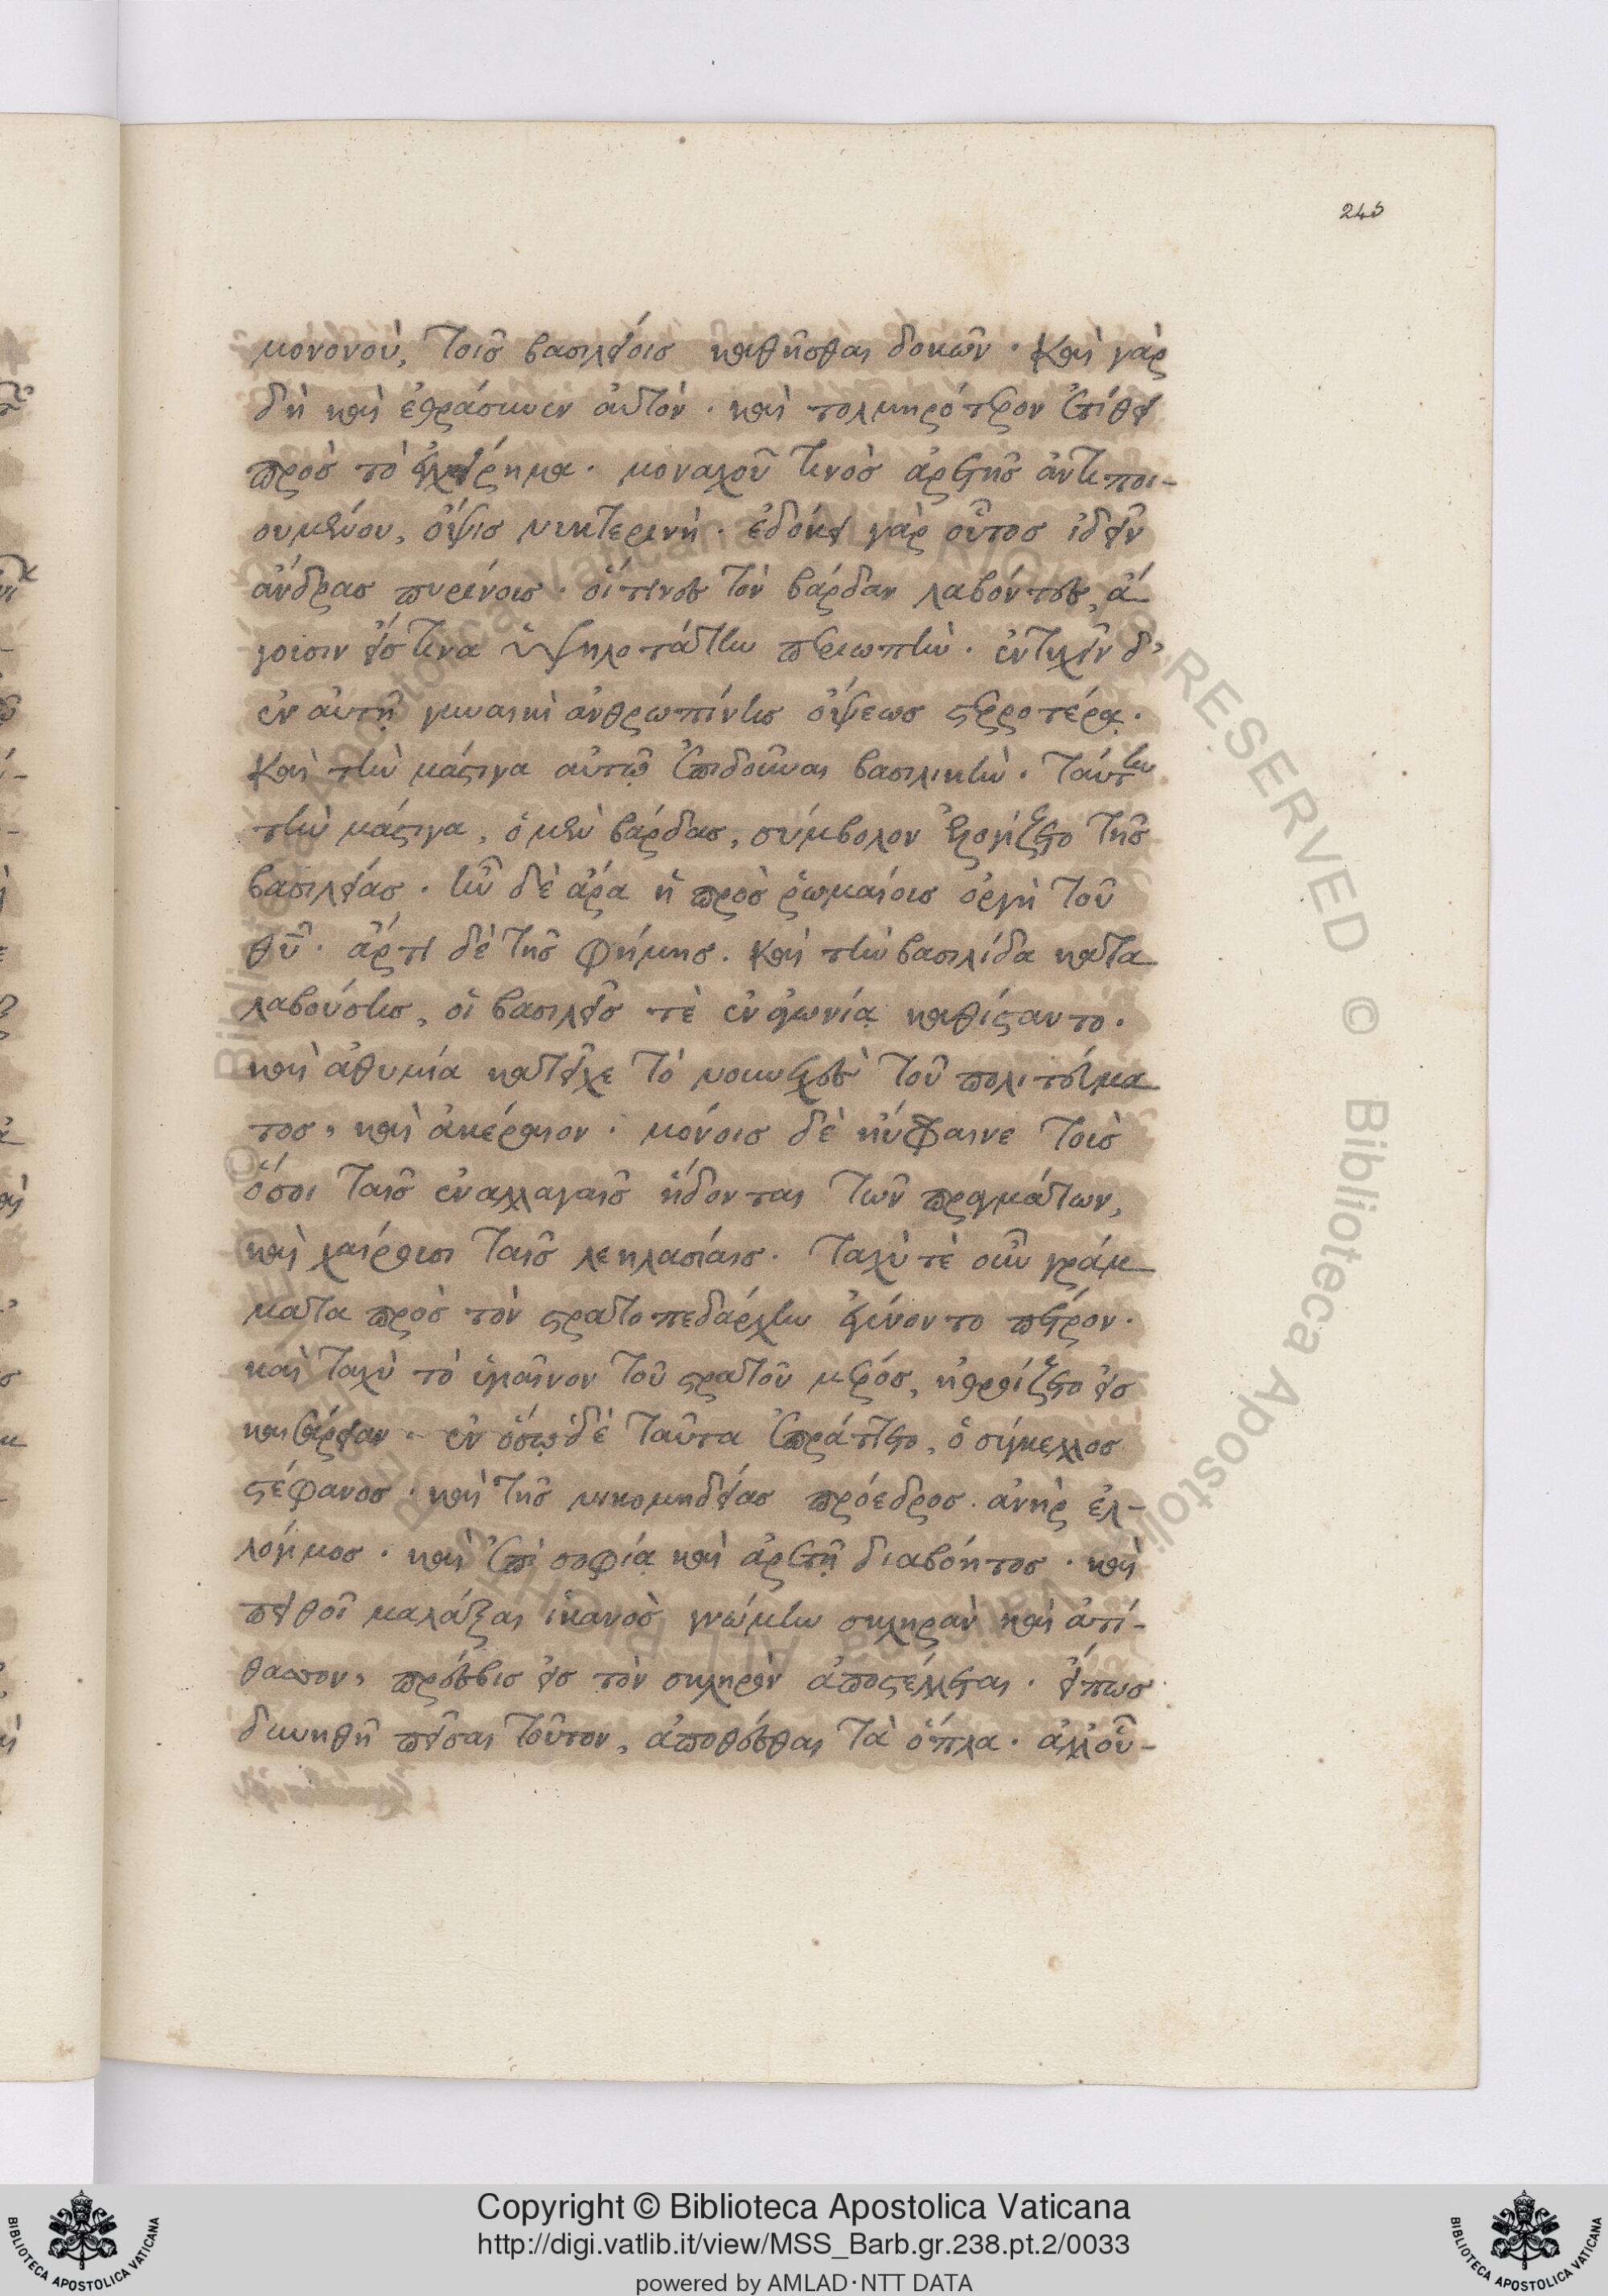 245
μονονού, τοῖς βασιλείοις καθῆσθαι δοκῶν. καὶ γὰρ
δὴ καὶ ἐθράσυνεν αὐτὸν. καὶ τολμηρότερον ἐτίθει
πρὸς τὸ ἐγχείρημα. μοναχοῦ τινὸς ἀρετῆς ἀντιποι-
ουμένου, ὄψις νυκτερινὴ. ἐδόκει γὰρ οὗτος ἰδεῖν
ἄνδρας πυρίνους. οἵτινες τὸν βάρδαν λαβόντες, ἄ
γουσιν εἴς τινα ὑψηλοτάτην περιωπὴν. ἐντυχεῖν δ'
ἐν αὐτῇ γυναικὶ ἀνθρωπίνης ὄψεως στερροτέρᾳ.
καὶ τὴν μάστιγα αὐτῷ ἐπιδοῦναι βασιλικὴν. ταύτην
τὴν μάστιγα, ὁ μὲν βάρδας, σύμβολον ἐλογίζετο τῆς
βασιλείας. ἦν δὲ ἄρα ἡ πρὸς ῥωμαίους ὀργὴ τοῦ
θῦ. ἄρτι δὲ τῆς φήμης. καὶ τὴν βασιλίδα κατα
λαβούσης, οἱ βασιλεῖς τὲ ἐν ἀγωνίᾳ καθίσταντο.
καὶ ἀθυμία κατεῖχε τὸ νουνεχὲς τοῦ πολιτεύμα
τος, καὶ ἀκέραιον. μόνοις δὲ ηὔφραινε τοῖς
ὅσοι ταῖς ἐναλλαγαῖς ἥδονται τῶν πραγμάτων,
καὶ χαίρουσι ταῖς λεηλασίαις. ταχὺ τὲ οὖν γράμ
ματα πρὸς τὸν στρατοπεδάρχην ἐγίνοντο πέτρον.
καὶ ταχὺ τὸ ὑγιαῖνον τοῦ στρατοῦ μέρος, ἠθροίζετο εἰς
καισάρειαν. ἐν ὅσῳ δὲ ταῦτα ἐπράττετο, ὁ σύγκελλος
στέφανος. καὶ τῆς νικομηδείας πρόεδρος. ἀνὴρ ἐλ-
λόγιμος. καὶ ἐπὶ σοφίᾳ καὶ ἀρετῇ διαβόητος. καὶ
πειθοῖ μαλάξαι ἱκανὸς γνώμην σκληρὰν καὶ ἀτί-
θασσον, πρέσβις εἰς τὸν σκληρὸν ἀποστέλλεται. εἴπως
δυνηθῆ πεῖσαι τοῦτον, ἀποθέσθαι τὰ ὅπλα. ἀλλ' οὗ-
Copyright © Biblioteca Apostolica Vaticana
http://digi.vatlib.it/view/MSS_Barb.gr.238.pt.2/0033
powered by AMLAD·NTT DATA